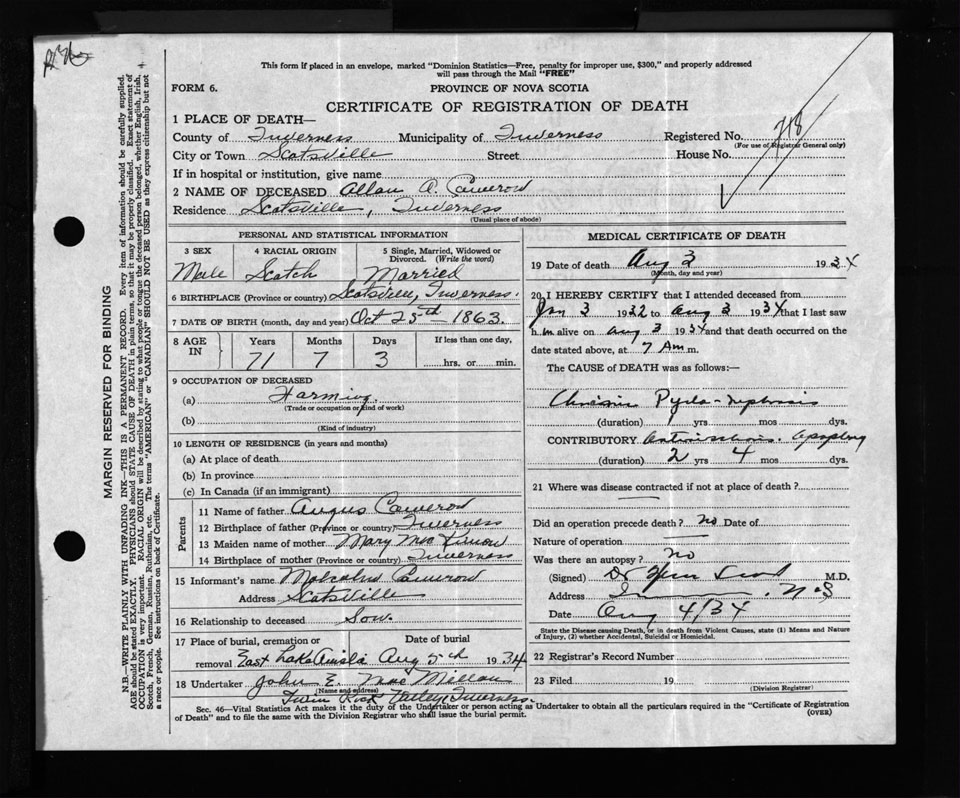 This form if placed in an envelope, marked "Dominion Statistics—Free, penalty for improper use, $300," and properly addressed
will pass through the Mail "FREE"
FORM 6. PROVINCE OF NOVA SCOTIA
CERTIFICATE OF REGISTRATION OF DEATH
1 PLACE OF DEATH—
County of Inverness Municipality of Inverness Registered No. 718
(For use of Registrar General only)
City or Town Scotsville Street House No.
If in hospital or institution, give name
2 NAME OF DECEASED Allan A. Cameron
Residence Scotsville, Inverness
(Usual place of abode)
PERSONAL AND STATISTICAL INFORMATION
3 SEX 4 RACIAL ORIGIN 5 Single, Married, Widowed or Divorced. (Write the word)
Male Scotch Married
6 BIRTHPLACE (Province or country) Scotsville, Inverness.
7 DATE OF BIRTH (month, day and year) Oct 25th 1863.
8 AGE IN Years Months Days If less than one day,
71 7 3 hrs. or min.
9 OCCUPATION OF DECEASED
(a) Farming.
(Trade or occupation or kind of work)
(b)
(Kind of industry)
10 LENGTH OF RESIDENCE (in years and months)
(a) At place of death
(b) In province
(c) In Canada (if an immigrant)
Parents
11 Name of father Angus Cameron
12 Birthplace of father (Province or country) Inverness
13 Maiden name of mother Mary MacKinnon
14 Birthplace of mother (Province or country) Inverness
15 Informant's name Malcolm Cameron
Address Scotsville
16 Relationship to deceased Son.
17 Place of burial, cremation or removal Date of burial
East Lake Ainslie Aug 5th 1934
18 Undertaker John E. MacMillan
(Name and address)
Twin Rock Valley, Inverness.
MEDICAL CERTIFICATE OF DEATH
19 Date of death Aug 3 1934
(Month, day and year)
20 I HEREBY CERTIFY that I attended deceased from
Jan 3 1932 to Aug 3 1934 that I last saw
him alive on Aug 3 1934 and that death occurred on
date stated above, at 7 A m.
The CAUSE of DEATH was as follows:—
Pyelo-nephrosis
(duration) yrs mos dys.
CONTRIBUTORY Apoplexy
(duration) 2 yrs 4 mos dys.
21 Where was disease contracted if not at place of death?
Did an operation precede death? no Date of
Nature of operation
Was there an autopsy? No
(Signed) Dr M.D.
Address N.S
Date Aug 4/34
State the Disease causing Death, or in death from Violent Causes, state (1) Means and Nature
of Injury, (2) whether Accidental, Suicidal or Homicidal.
22 Registrar's Record Number
23 Filed 19
(Division Registrar)
Sec. 46—Vital Statistics Act makes it the duty of the Undertaker or person acting as Undertaker to obtain all the particulars required in the "Certificate of Registration
of Death" and to file the same with the Division Registrar who shall issue the burial permit. (OVER)
MARGIN RESERVED FOR BINDING
N.B.—WRITE PLAINLY WITH UNFADING INK—THIS IS A PERMANENT RECORD. Every item of information should be carefully supplied.
AGE should be stated EXACTLY. PHYSICIANS should STATE CAUSE OF DEATH in plain terms, so that it may be properly classified. Exact statement of
OCCUPATION is very important. RACIAL ORIGIN will be described by stating to what people or tongue the deceased person belonged, whether English, Irish,
Scotch, French, German, Russian, Ruthenian, etc. The terms "AMERICAN" or "CANADIAN" SHOULD NOT BE USED as they express citizenship but not
a race or people. See instructions on back of Certificate.